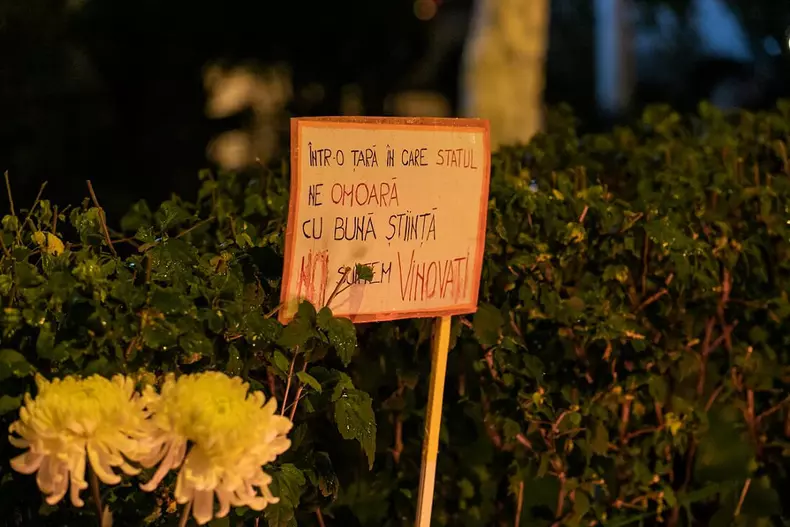 ÎNTR-O ȚARĂ ÎN CARE STATUL
NE OMOARĂ
CU BUNĂ ȘTIINȚĂ
NOI SUNTEM VINOVAȚI